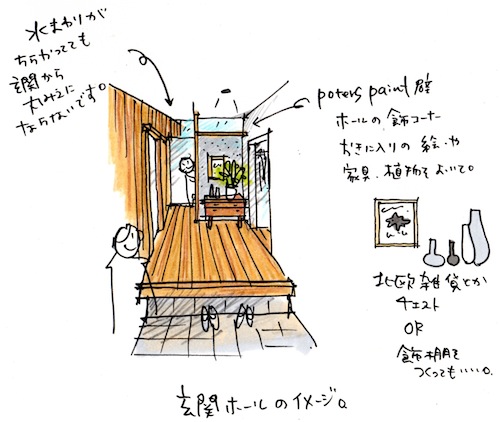 水まわりが
ちらかってても
玄関から
丸みえに
ならないです。
poters paint 壁
ホールの飾コーナー
おきに入りの絵.や
家具.植物をよいて。
北欧雑貨とか
チェスト
OR
飾棚を
つくってもいい。
玄関ホールのイメージ。